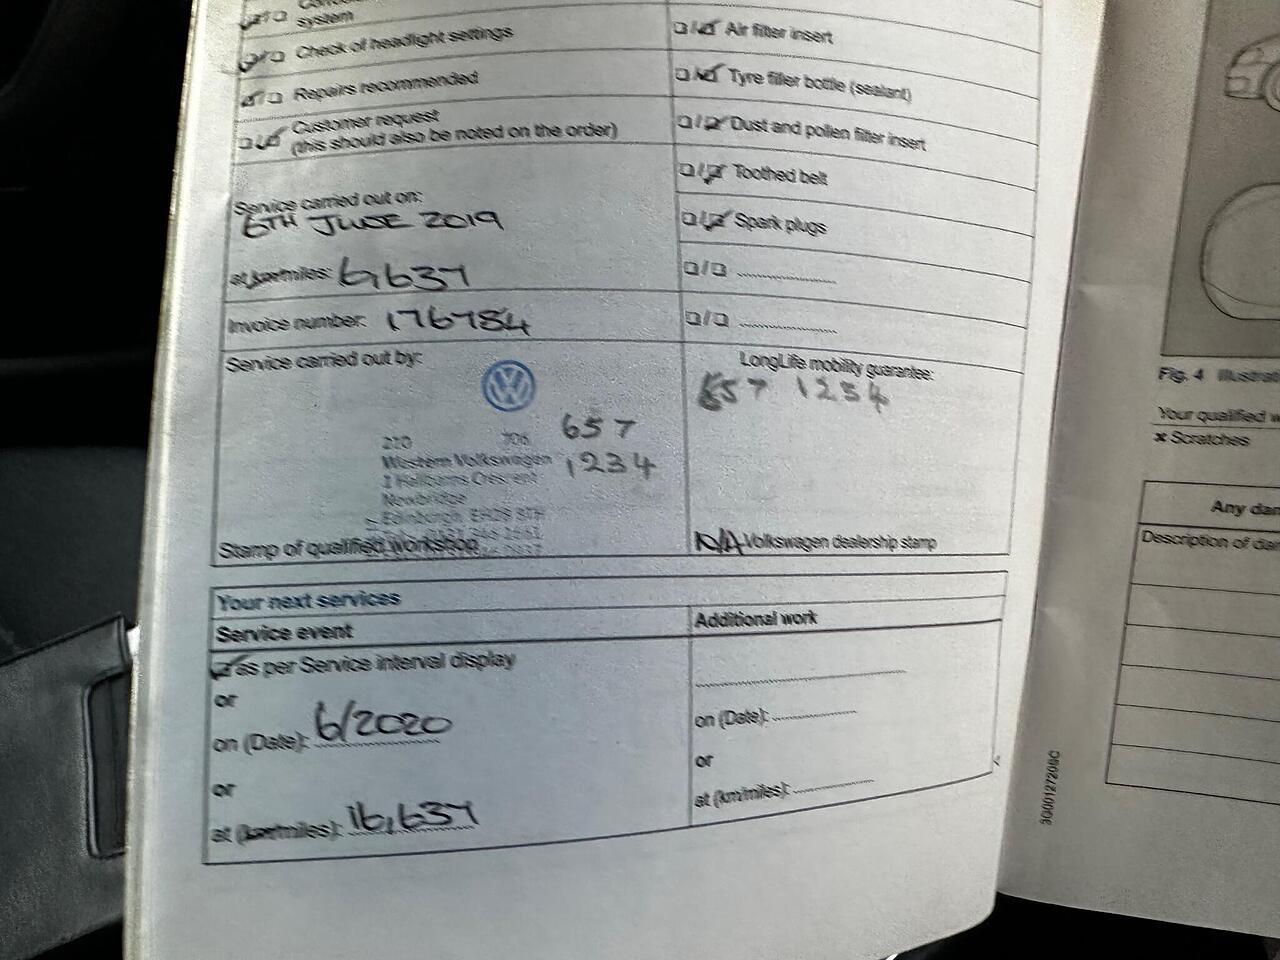 system
Check of headlight settings
Repairs recommended
Customer request
(this should also be noted on the order)
Service carried out on:
6TH JUNE 2019
at km/miles: 6,637
Invoice number: 176784
Service carried out by:
657
1234
210 706
Western Volkswagen
Newbridge
Edinburgh, EH28 8TH
Stamp of qualified workshop
Air filter insert
Tyre filler bottle (sealant)
Dust and pollen filter insert
Toothed belt
Spark plugs
LongLife mobility guarantee:
657 1234
N/A Volkswagen dealership stamp
Your next services
Service event
as per Service interval display
or
on (Date): 6/2020
or
at (km/miles): 16,637
Additional work
on (Date):
or
at (km/miles):
3G0012720SC
Fig. 4
Your qualified
x Scratches
Any
Description of